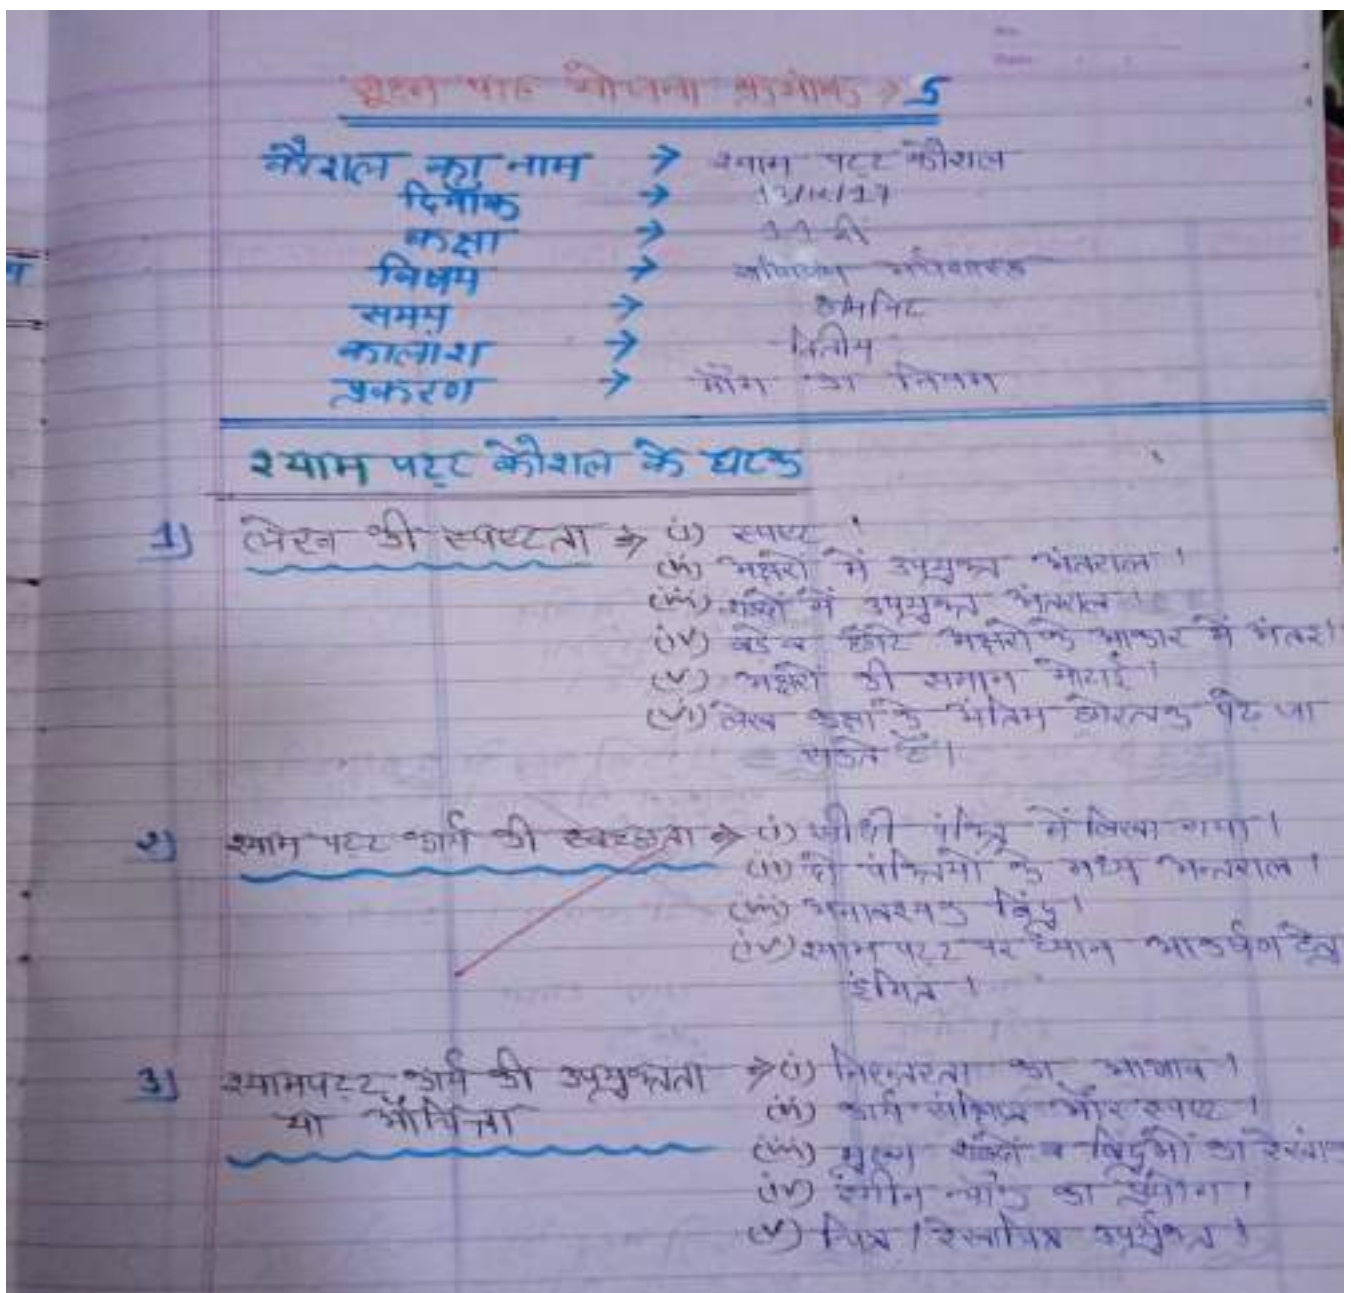 सूक्ष्म पाठ योजना क्रमांक → 5
कौशल का नाम → श्याम पट्ट कौशल
दिनांक →
कक्षा → 11 वीं
विषय →
समय → मिनिट
कालांश → द्वितीय
प्रकरण → माँग का नियम
श्याम पट्ट कौशल के घटक
1) लेखन की स्पष्टता ⇒ (i) स्पष्ट ।
(ii) अक्षरों में उपयुक्त अंतराल ।
(iii) शब्दों में उपयुक्त अंतराल ।
(iv) बड़े व छोटे अक्षरों के आकार में अंतर।
(v) अक्षरों की समान मोटाई ।
(vi) लेख कक्षा के अंतिम छोर तक पढे जा
सकते है।
2) श्याम पट्ट कार्य की स्वच्छता ⇒ (i) सीधी पंक्ति में लिखा गया ।
(ii) दो पंक्तियों के मध्य अन्तराल ।
(iii) अनावश्यक बिंदु।
(iv) श्याम पट्ट पर ध्यान आकर्षण हेतु
इंगित ।
3) श्यामपट्ट कार्य की उपयुक्तता ⇒ (i) निरन्तरता का आभाव ।
या औचित्य (ii) कार्य संक्षिप्त और स्पष्ट ।
(iii) मुख्य शब्दों व बिंदुओं का रेखां
(iv) रंगीन चाँक का प्रयोग ।
(v) चित्र / रेखाचित्र उपर्युक्त ।